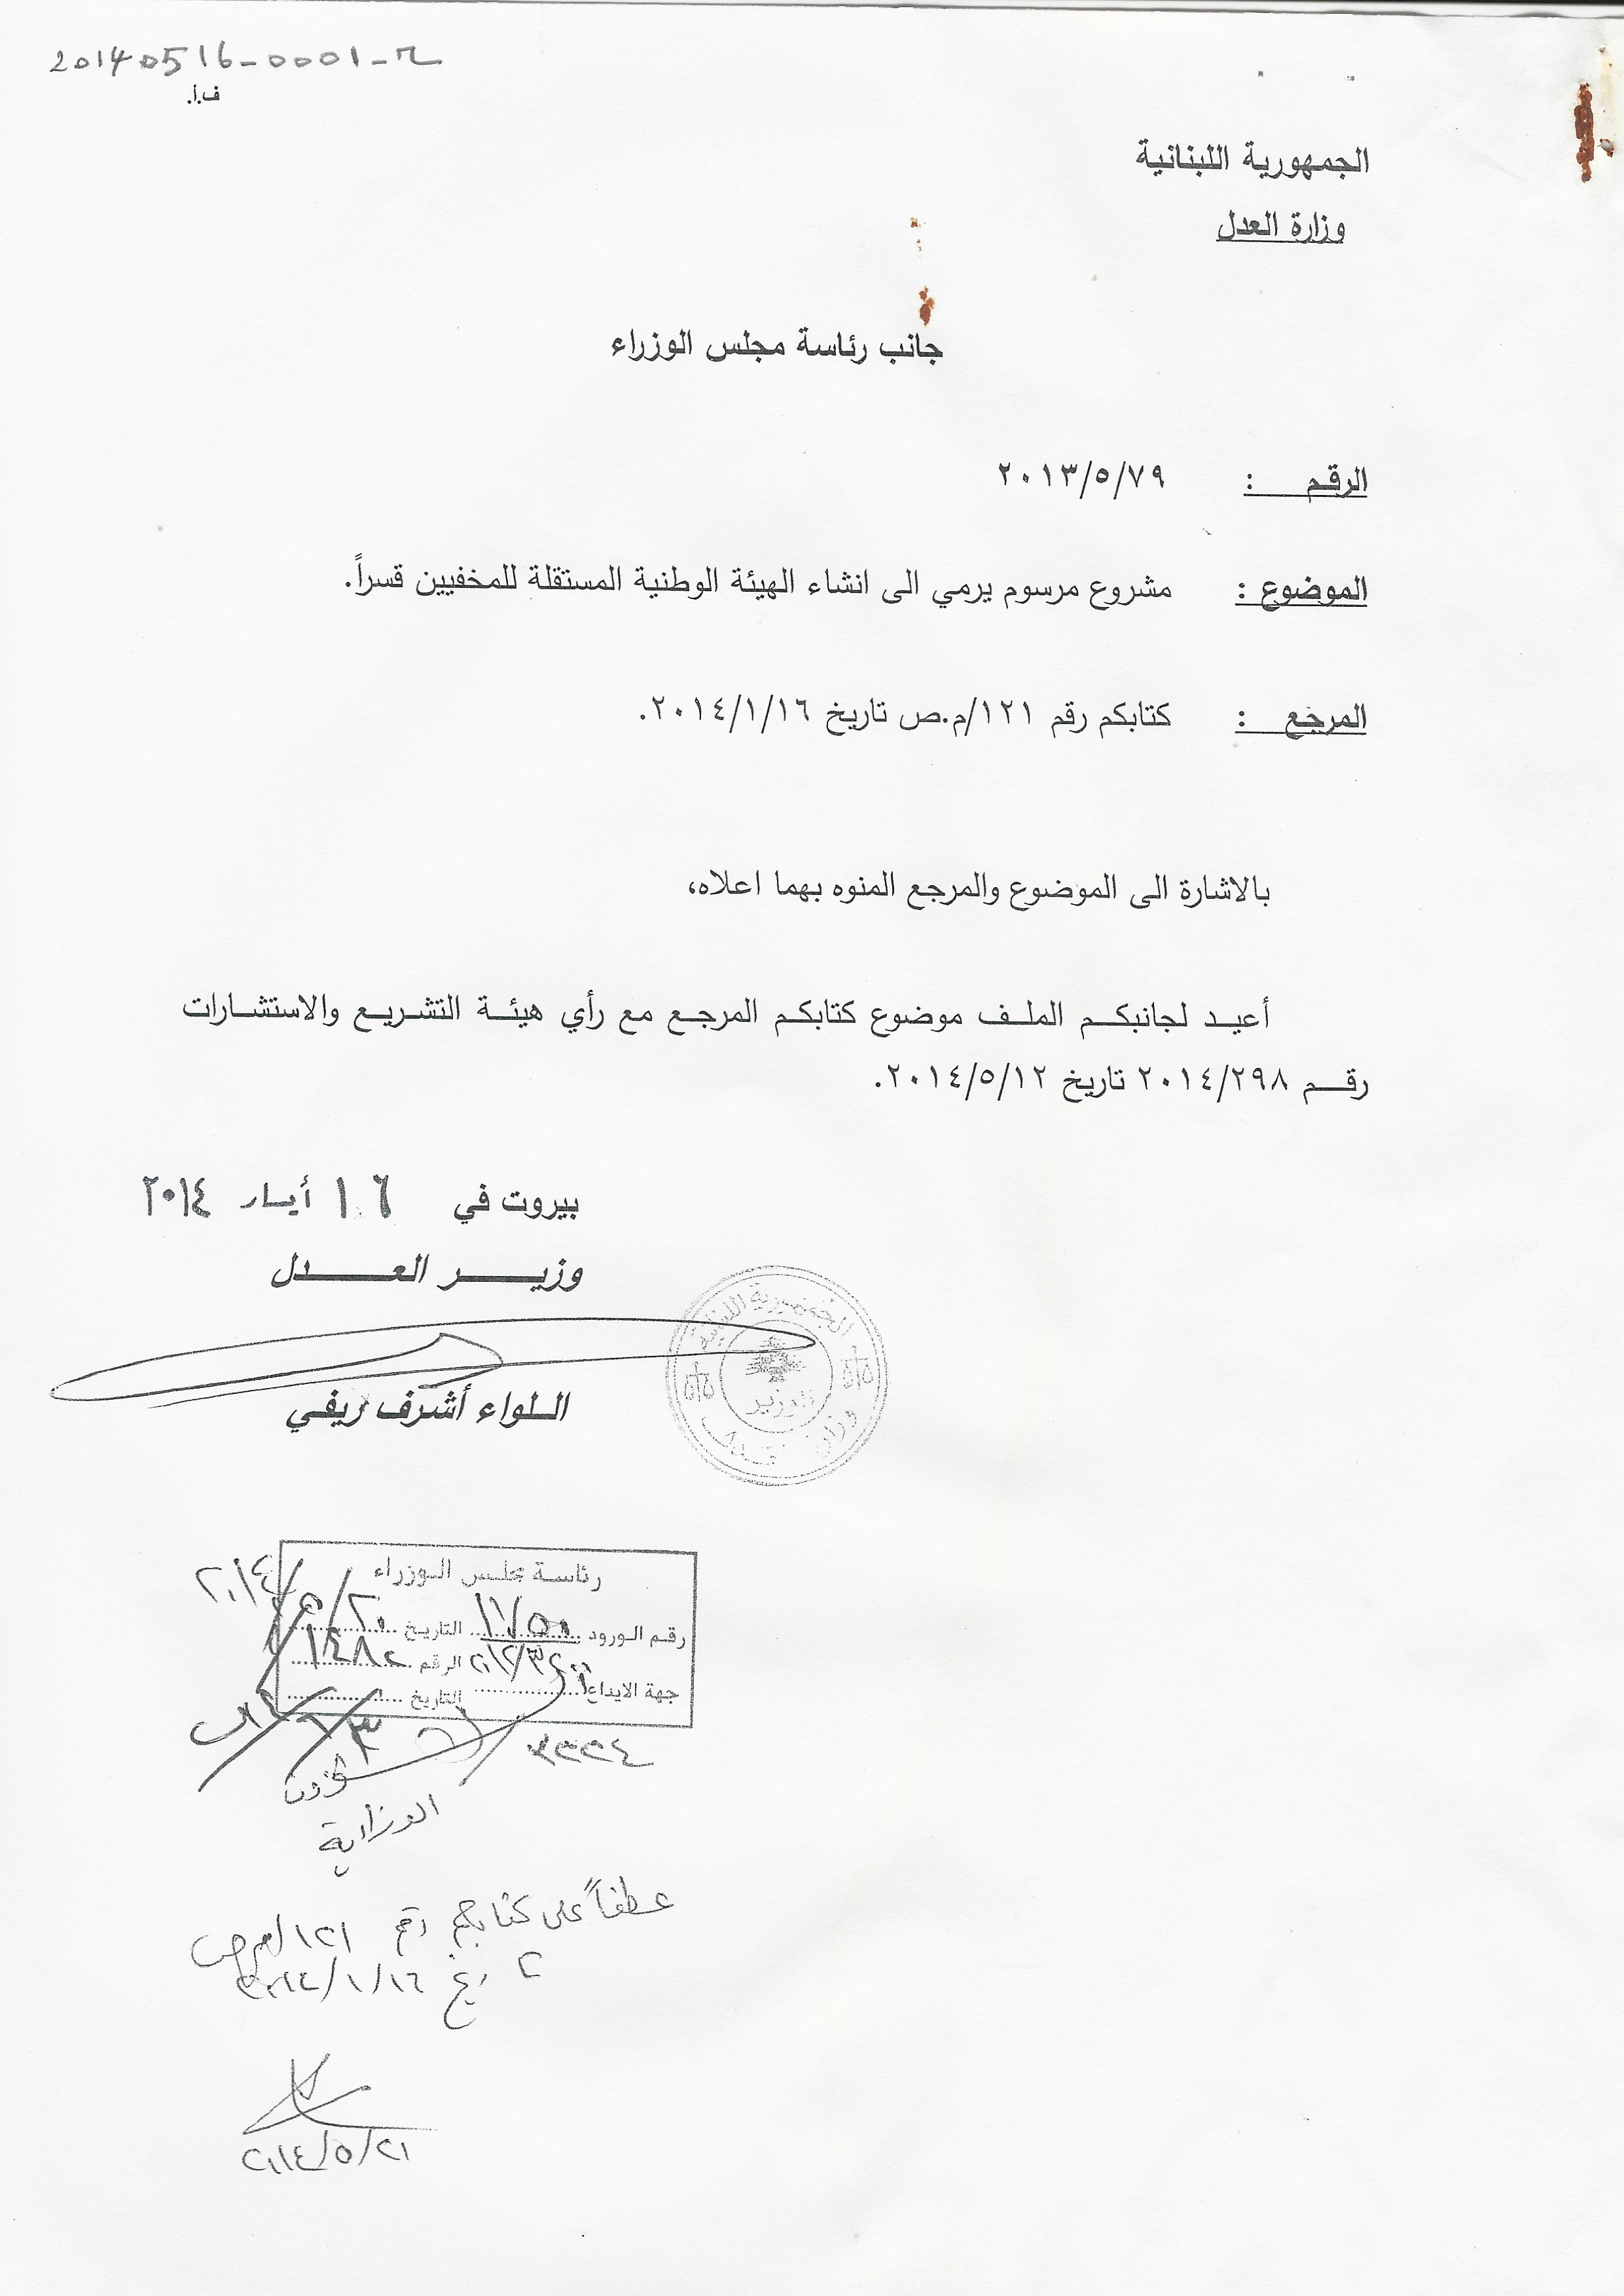 20140516-0001-2
ف.أ.
الجمهورية اللبنانية
وزارة العدل
جانب رئاسة مجلس الوزراء
الرقم : ٢٠١٣/٥/٧٩
الموضوع : مشروع مرسوم يرمي الى انشاء الهيئة الوطنية المستقلة للمخفيين قسراً.
المرجع : كتابكم رقم ١٢١/م.ص تاريخ ٢٠١٤/١/١٦.
بالاشارة الى الموضوع والمرجع المنوه بهما اعلاه،
أعيد لجانبكم الملف موضوع كتابكم المرجع مع رأي هيئة التشريع والاستشارات
رقم ٢٠١٤/٢٩٨ تاريخ ٢٠١٤/٥/١٢.
بيروت في ١٦ أيار ٢٠١٤
وزير العدل
اللواء أشرف ريفي
الجمهورية اللبنانية
الوزير
وزارة
رئاسة مجلس الوزراء
رقم الورود التاريخ ٢٠١٤/٥/٢٠
الرقم
جهة الايداع التاريخ
الوزارية
عطفاً على كتابكم رقم ١٢١/م.ص
تاريخ ٢٠١٤/١/١٦
٢٠١٤/٥/٢١